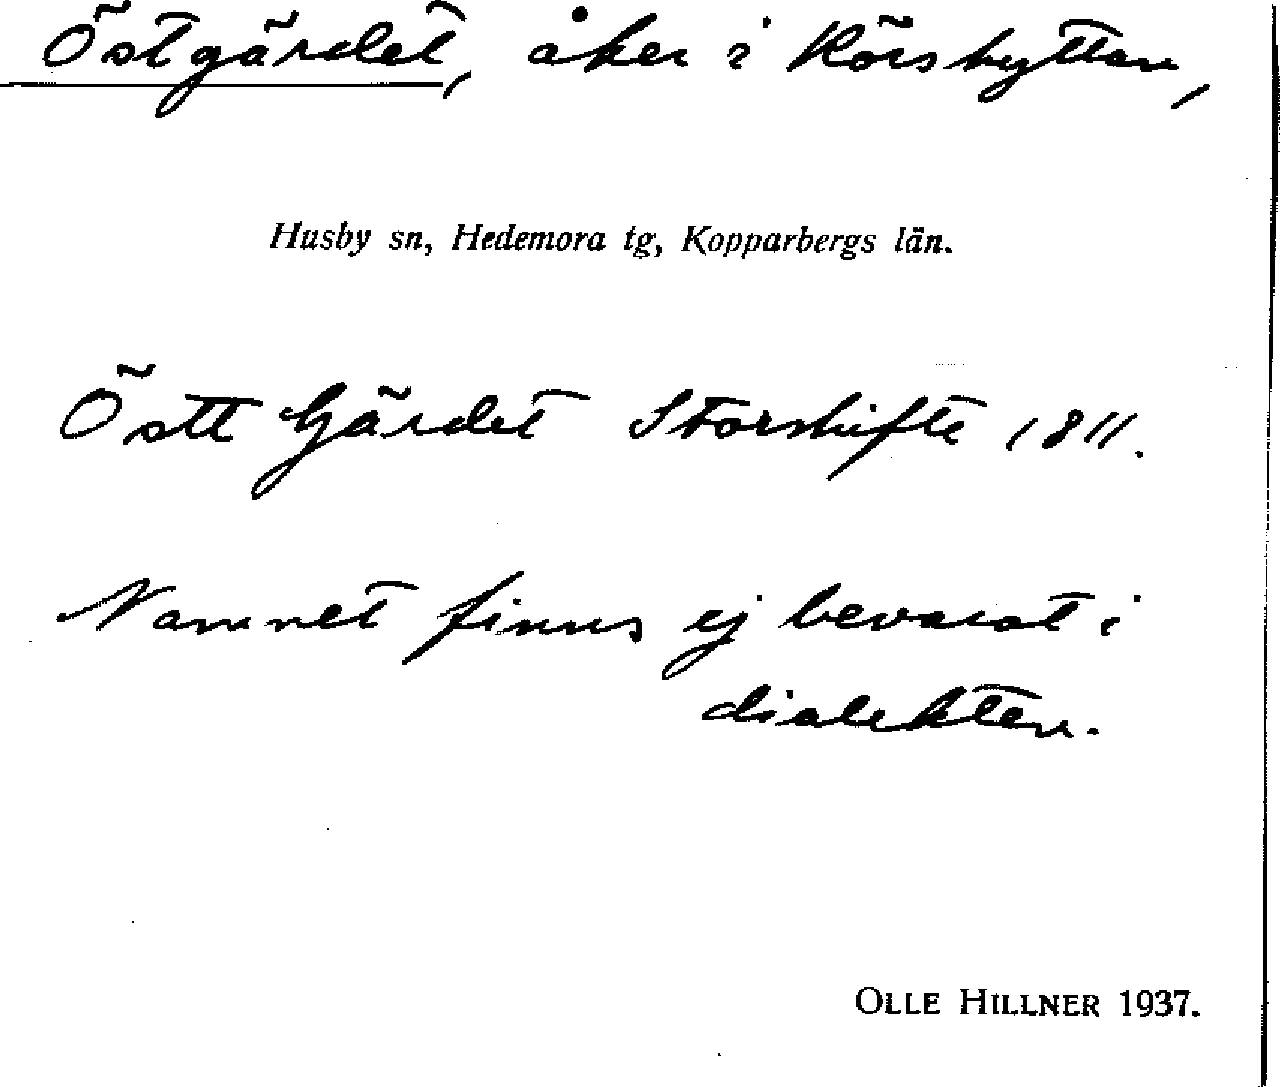 Östgärdet, åker i Rörshyttan,
Husby sn, Hedemora tg, Kopparbergs län.
Östt Gärdet Storskifte 1811.
Namnet finns ej bevarat i
dialekten.
OLLE HILLNER 1937.